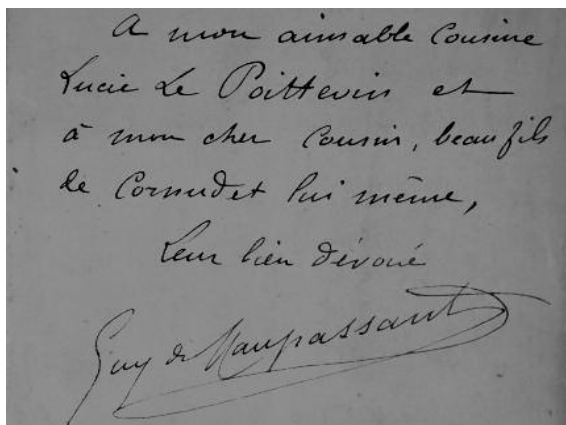 A mon aimable Cousine
Lucie Le Poittevin et
à mon cher Cousin, beau fils
de Cornudet lui même,
Leur bien dévoué
Guy de Maupassant